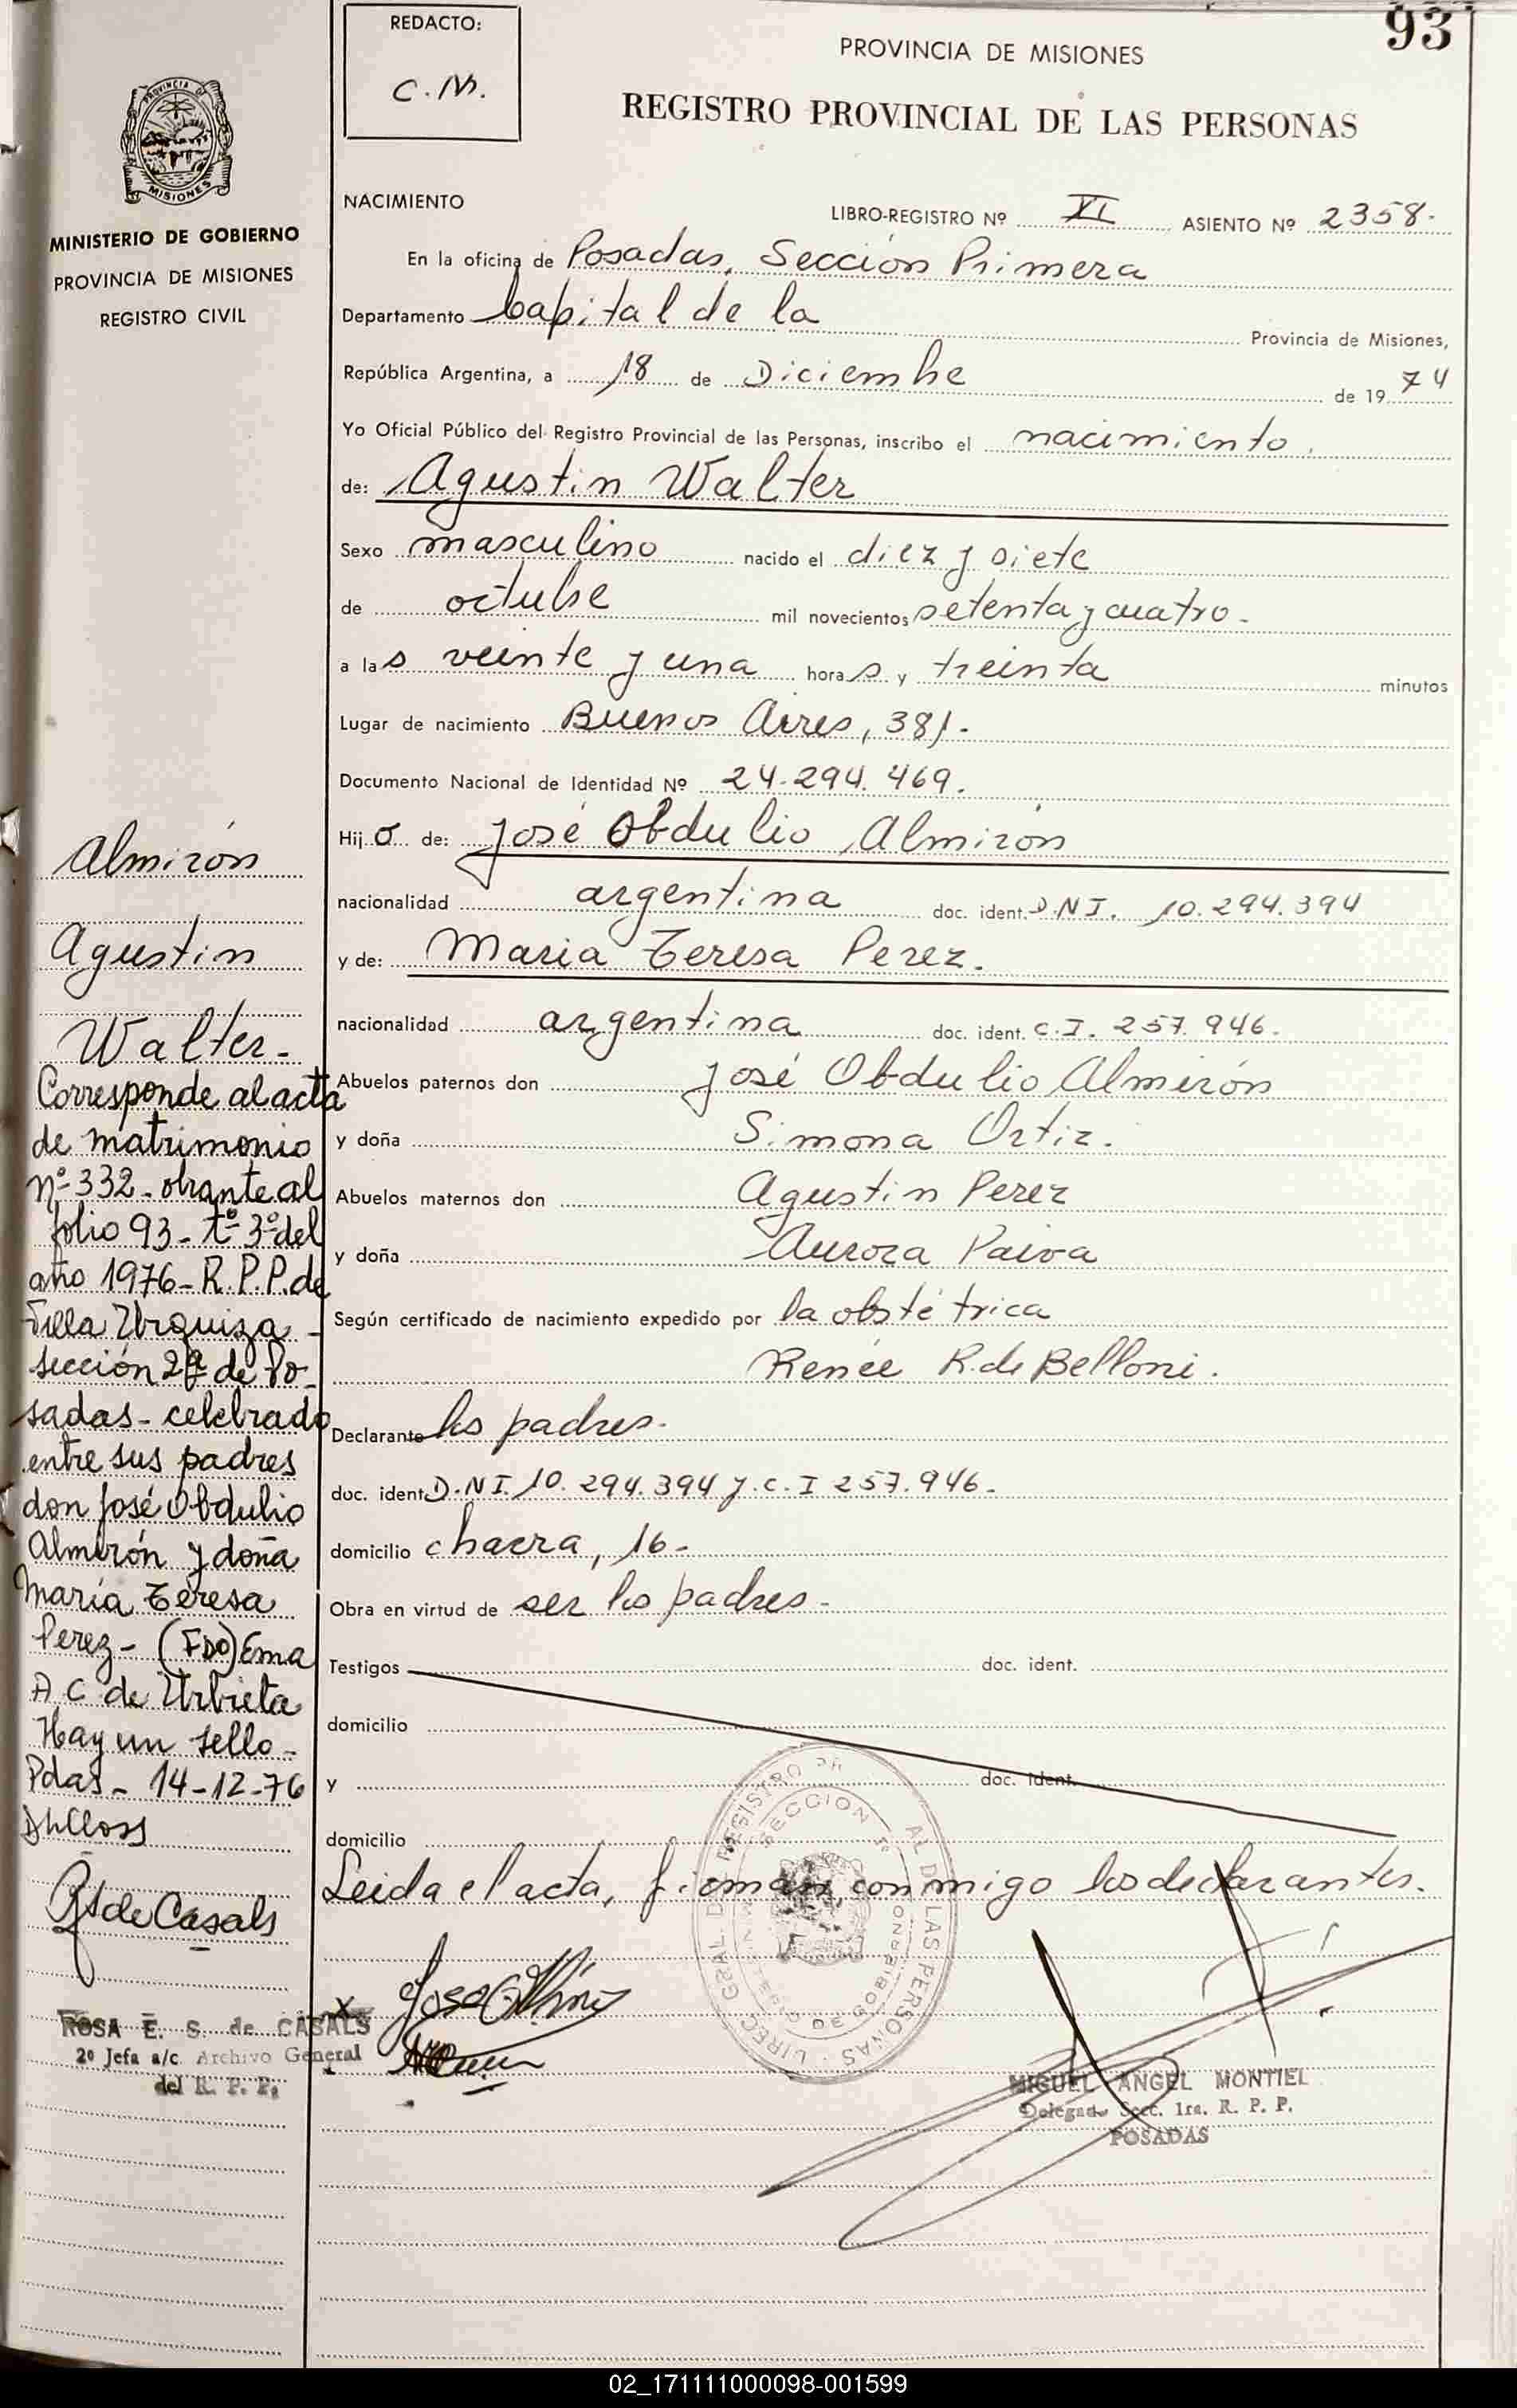 93
REDACTO:
C.M.
PROVINCIA DE MISIONES
REGISTRO PROVINCIAL DE LAS PERSONAS
PROVINCIA DE
MISIONES
MINISTERIO DE GOBIERNO
PROVINCIA DE MISIONES
REGISTRO CIVIL
NACIMIENTO
LIBRO-REGISTRO Nº XI ASIENTO Nº 2358.
En la oficina de Posadas, Sección Primera
Departamento Capital de la Provincia de Misiones,
República Argentina, a 18 de Diciembre de 1974
Yo Oficial Público del Registro Provincial de las Personas, inscribo el nacimiento
de: Agustin Walter
Sexo masculino nacido el diez y siete
de octubre mil novecientos setenta y cuatro.
a las veinte y una horas y treinta minutos
Lugar de nacimiento Buenos Aires, 381.
Documento Nacional de Identidad Nº 24.294.469.
Hijo de: José Obdulio Almirón
nacionalidad argentina doc. ident. D.N.I. 10.294.394
y de: Maria Teresa Perez.
nacionalidad argentina doc. ident. C.I. 257.946.
Abuelos paternos don José Obdulio Almirón
y doña Simona Ortiz.
Abuelos maternos don Agustin Perez
y doña Aurora Paiva
Según certificado de nacimiento expedido por la obstétrica
Renée R. de Belloni.
Declarante los padres.
doc. ident D.N.I. 10.294.394 y C.I 257.946.
domicilio chacra, 16.
Obra en virtud de ser los padres.
Testigos doc. ident.
domicilio
y doc. ident.
domicilio
Leida el acta, firman, conmigo los declarantes.
Almirón
Agustin
Walter.
Corresponde al acta
de matrimonio
nº 332 - obrante al
folio 93 - tº 3º del
año 1976 - R.P.P. de
Villa Urquiza -
sección 2ª de Po-
sadas - celebrado
entre sus padres
don José Obdulio
Almirón y doña
María Teresa
Perez - (FDO) Ema
A C de Urbieta
Hay un sello -
Pdas - 14-12-76
RSde Casals
ROSA E. S. de CASALS
2º Jefa a/c. Archivo General
del R. P. P.
MIGUEL ANGEL MONTIEL
Delegado Secc. 1ra. R. P. P.
POSADAS
02_171111000098-001599